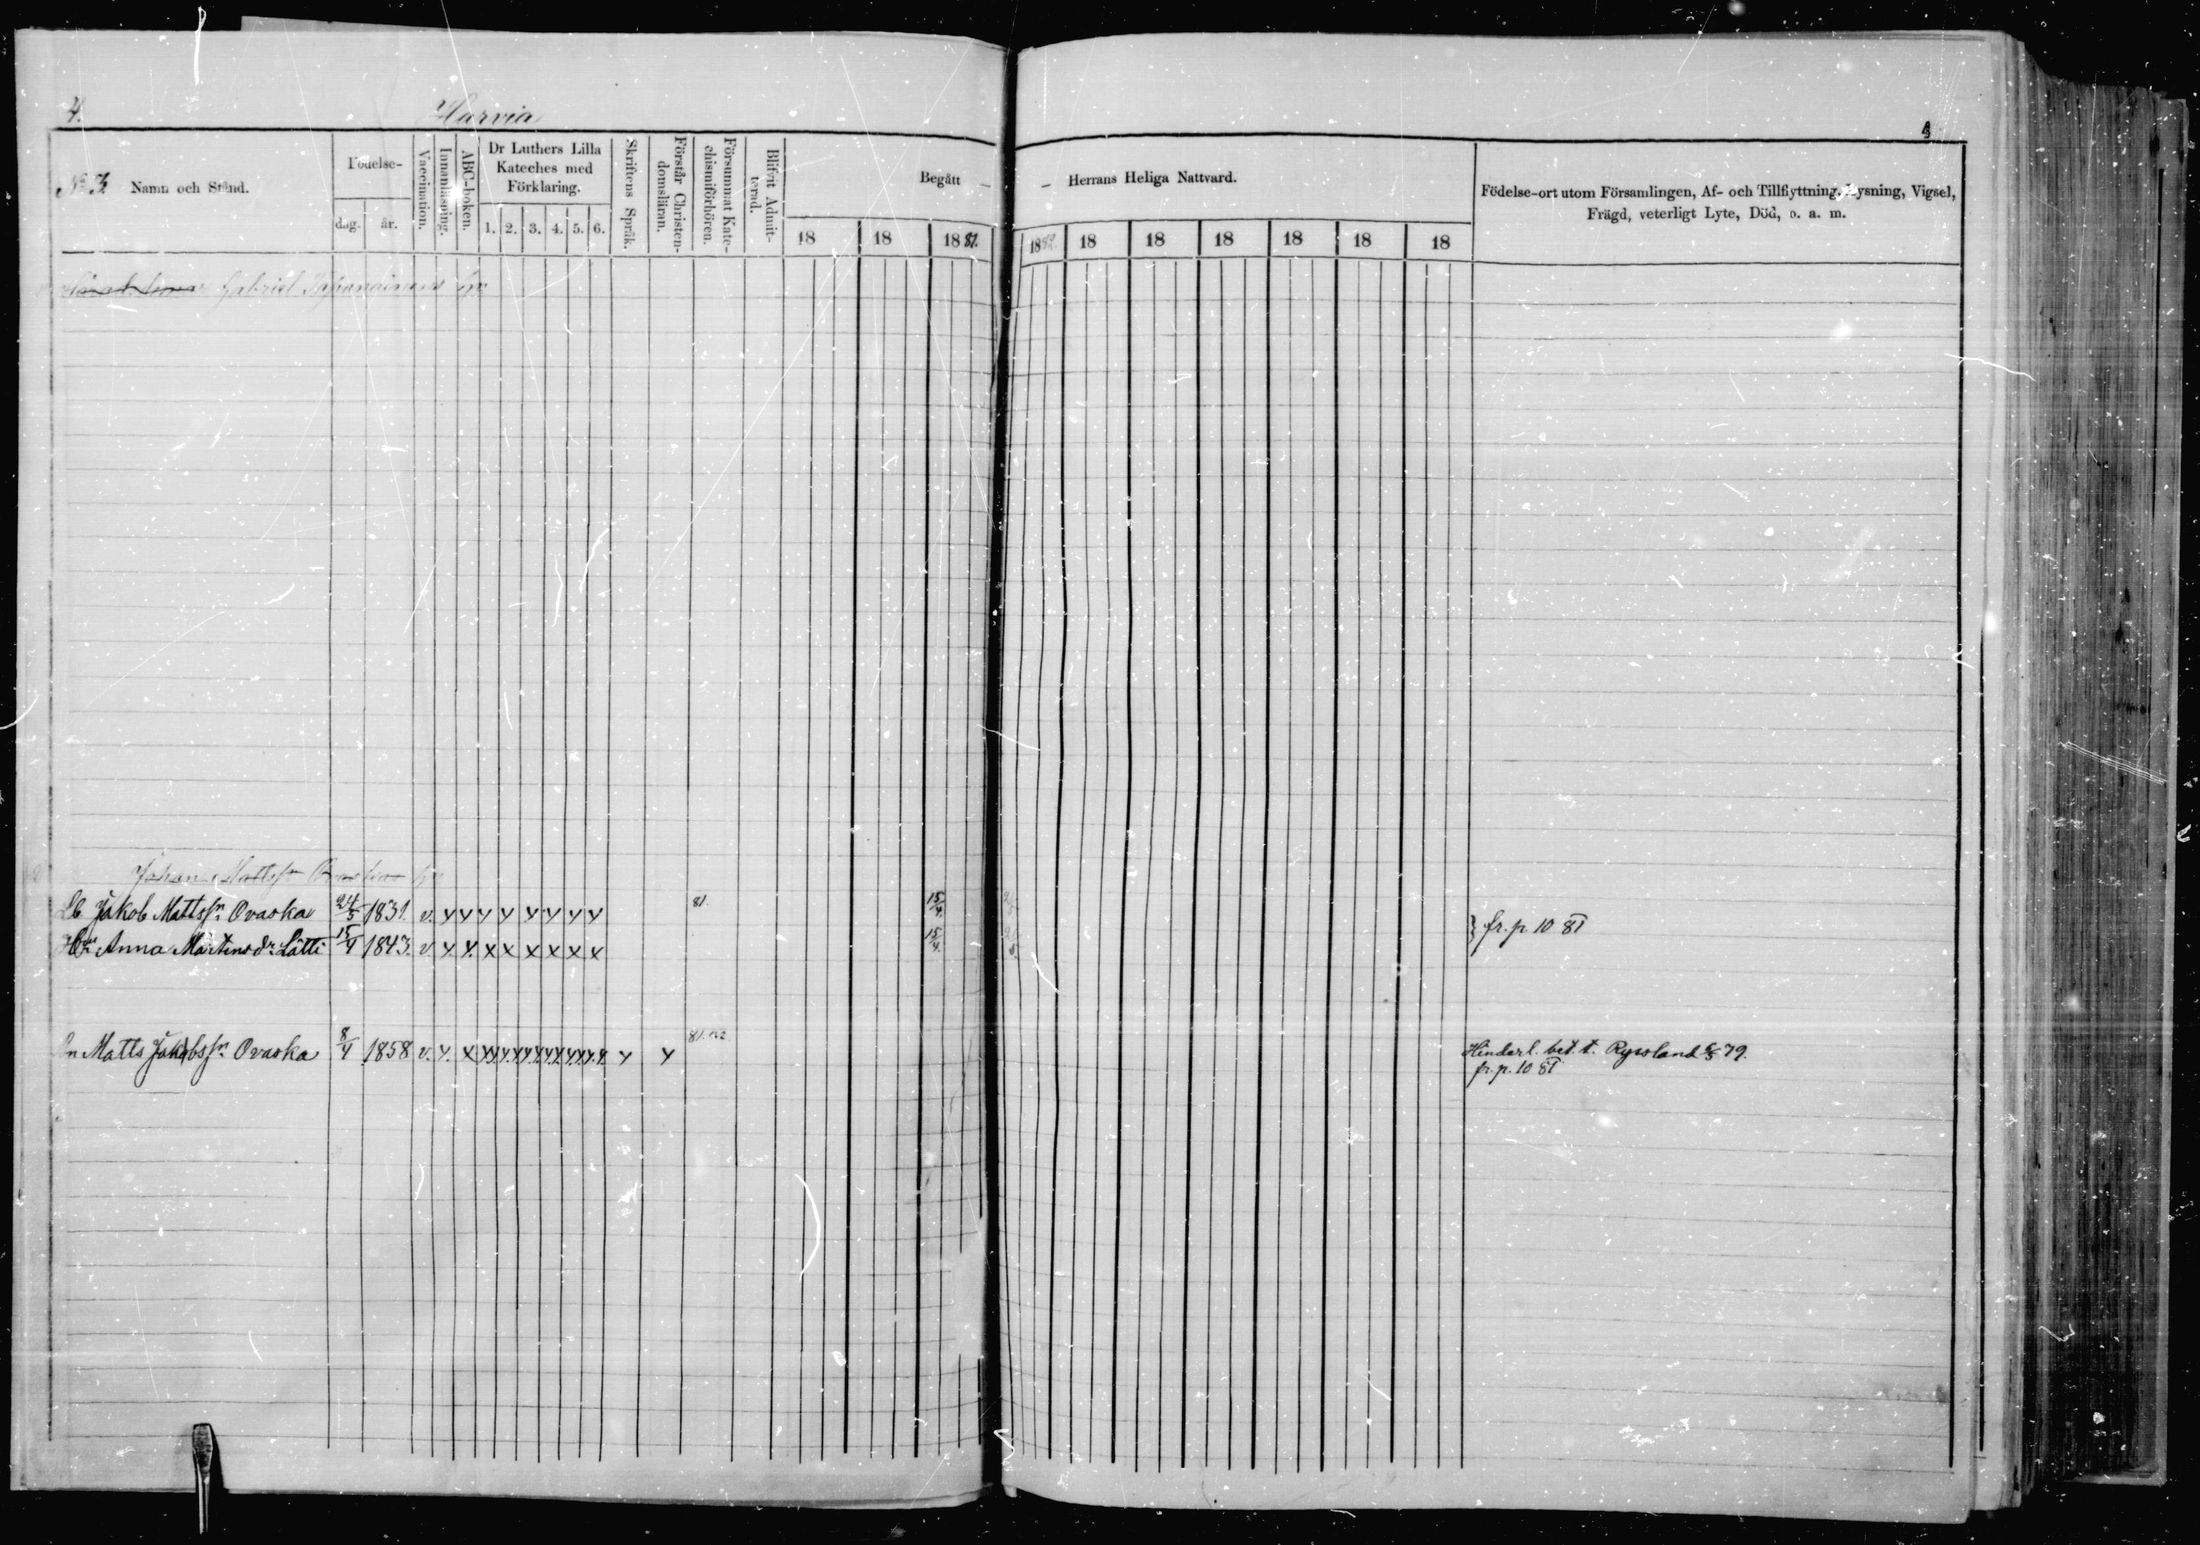 4.
Harvia
4
No 3 Namn och Stånd.
Födelse-
dag. år.
Vaccination.
Innanläsning.
ABC-boken.
Dr Luthers Lilla
Kateches med
Förklaring.
1. 2. 3. 4. 5. 6.
Skriftens Språk.
Förstår Christen-
domsläran.
Försummat Kate-
chismiförhören.
Blifvit Admit-
terad.
Begått — — Herrans Heliga Nattvard.
18 18 1881. 1882. 18 18 18 18 18 18
Födelse-ort utom Församlingen, Af- och Tillflyttning, Lysning, Vigsel,
Frägd, veterligt Lyte, Död, o. a. m.
Gabriel
Johan Mattss:n
Jakob Mattss:n Ovaska 24/5 1831. v. x x x x x x x x 81. 15/4.
Anna Martinsdr Lätti 15/4 1843. v x x x x x x x x 15/4.
} fr. p. 10 81
Matts Jakobss:n Ovaska 8/4 1858 v. x. x x x x x x x x x 81. Hinderl. bet. t. Ryssland 79.
fr. p. 10 81